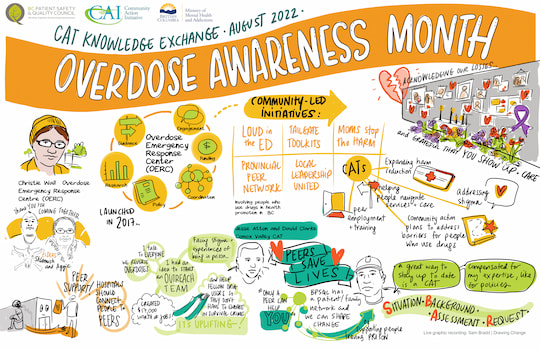 BC PATIENT SAFETY
& QUALITY COUNCIL
CAI
Community
Action
Initiative
BRITISH
COLUMBIA
Ministry of
Mental Health
and Addictions
CAT KNOWLEDGE EXCHANGE · AUGUST 2022 ·
OVERDOSE AWARENESS MONTH
ACKNOWLEDGING OUR LOSSES
and GRATEFUL THAT YOU SHOW UP + CARE
COMMUNITY-LED
INITIATIVES:
LOUD in
the ED
TAILGATE
TOOLKITS
MOMS Stop
THE HARM
PROVINCIAL
PEER
NETWORK
LOCAL
LEADERSHIP
UNITED
CATs
Involving people who
use drugs in health
promotion in BC
Guidance
Engagement
Funding
Coordination
Policy
Research
Overdose
Emergency
Response
Center
(OERC)
Christie Wall Overdose
Emergency Response
Centre (OERC)
LAUNCHED
in 2017...
Expanding harm
reduction
Helping
people navigate
services + care
addressing
stigma
peer
employment +
training
Community action
plans to address
barriers for people
who use drugs
THANK YOU FOR
COMING TOGETHER
PEER
SUPPORT!
HOSPITALS
COULD
CONNECT
PEOPLE TO
PEERS
I talk to
EVERYONE
we REVERSE
OVERDOSES
CREATED
$17,000
WORTH of JOBS!
I had an
IDEA to
START
OUTREACH
TEAM
Facing stigma +
experiences of
being in prison.
IT'S UPLIFTING
Comox Valley CAT
PEERS
SAVE
LIVES!
"ONLY A PEER
CAN HELP
YOU"
BPSQC has
a patient/family
network and
we can SHAPE
CHANGE
Supporting people
leaving PRISON
A great way to
stay up to date
is a CAT
Compensated for
my expertise, like
for policies.
SITUATION · BACKGROUND ·
ASSESSMENT · REQUEST
Live graphic recording: Sam Bradd | Drawing Change